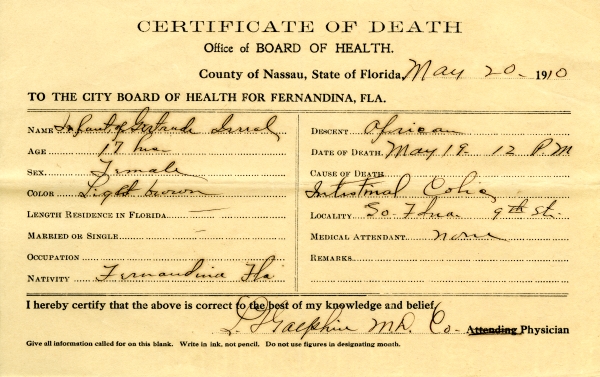 CERTIFICATE OF DEATH
Office of BOARD OF HEALTH.
County of Nassau, State of Florida, May 20 - 1910
TO THE CITY BOARD OF HEALTH FOR FERNANDINA, FLA.
NAME Infant of Gertrude
AGE 17
SEX. Female
COLOR Light brown
LENGTH RESIDENCE IN FLORIDA —
MARRIED OR SINGLE —
OCCUPATION
NATIVITY Fernandina Fla
DESCENT African
DATE OF DEATH. May 19 - 12 PM
CAUSE OF DEATH
Intestinal Colic
LOCALITY So. Fdna. 9th St.
MEDICAL ATTENDANT none
REMARKS
I hereby certify that the above is correct to the best of my knowledge and belief
MD. Co - Attending Physician
Give all information called for on this blank. Write in ink, not pencil. Do not use figures in designating month.